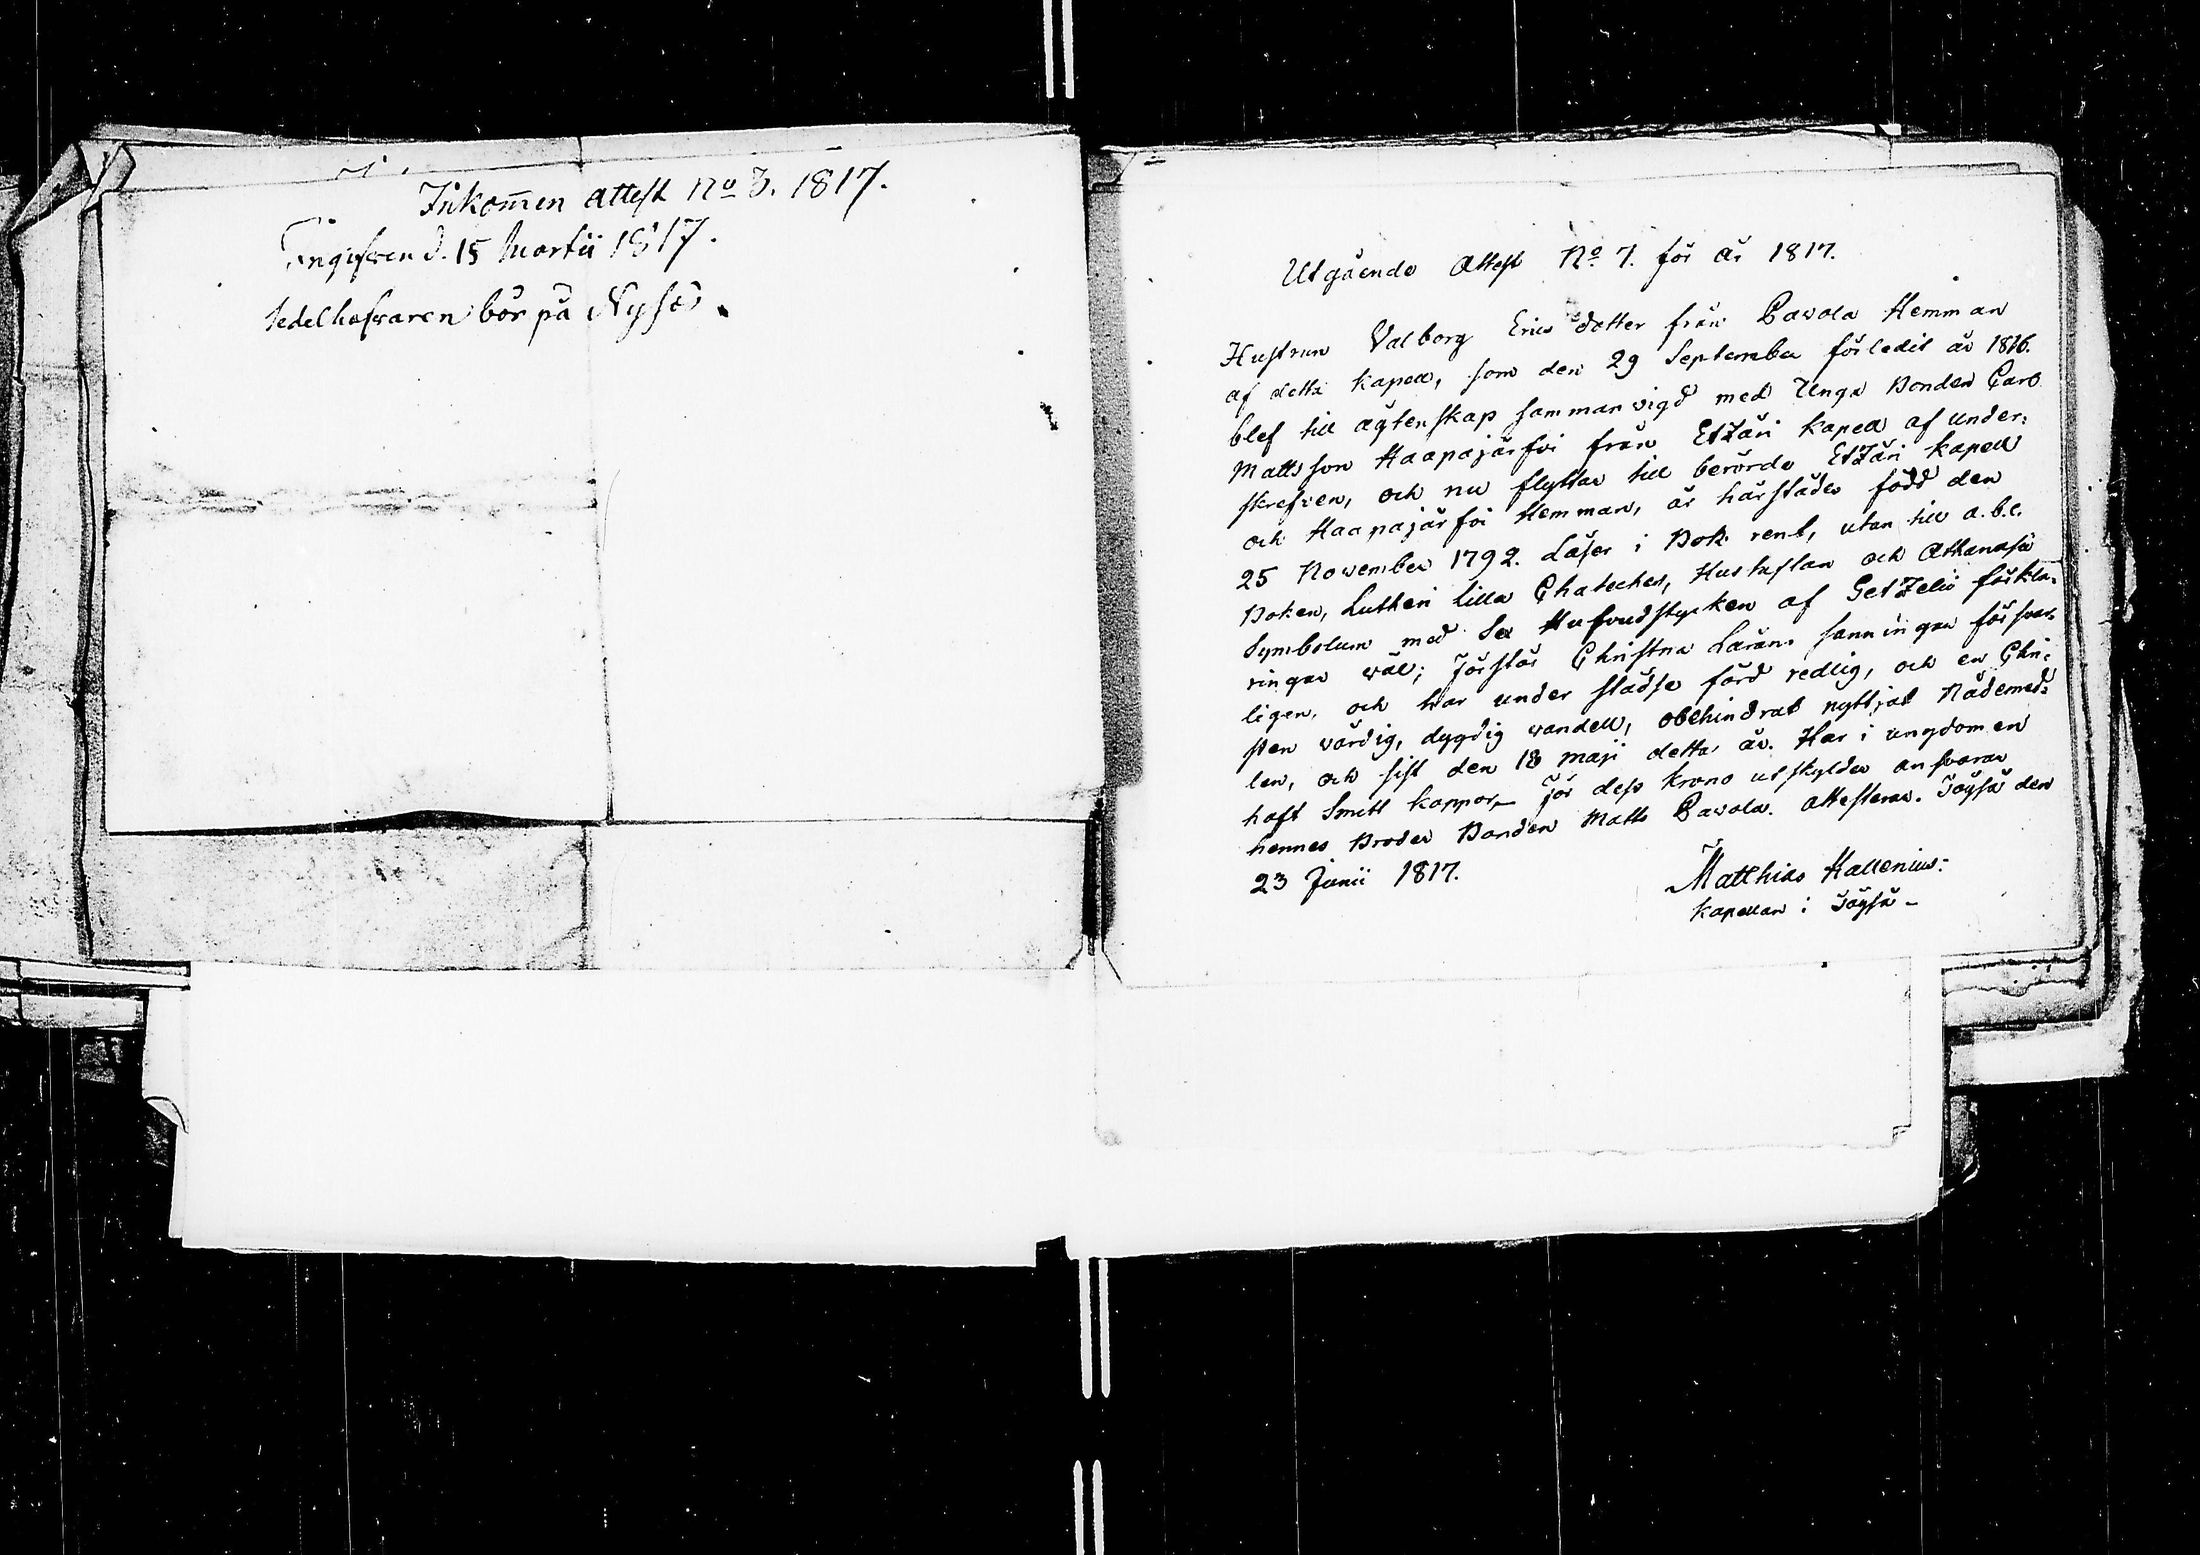 Inkom̄en attest No 3. 1817.
Ingifven d. 15 Martii 1817.
Sedelhafvaren bor på Nysö
Utgående Attest No. 7. för år 1817.
Hustrun Valborg Ericsdotter från Pavola Hemman
af detta kapell, som den 29 September förledit år 1816.
blef till ägtenskap sammanvigd med Unga Bonden Carl
Mattsson Haapajärfvi från Etzäri kapell af under:
skrefven, och nu flyttar till berörde Etzäri kapell
och Haapajärfvi Hemman, är härstädes född den
25 November 1792. Läser i Bok rent, utan till a.b.c.
Boken, Lutheri Lilla Chateches, Hustaflan och Athanasii
Symbolum med Sex Hufvudstycken af Getzelii förkla:
ringar väl; förstår Christna Lärans sanningar försvar:
ligen, och har under städse förd redlig, och en Chri:
sten värdig, dygdig vandell, obehindrat nyttjat Nådemed:
len, och sist den 18 Maji detta år. Har i ungdomen
haft Smitt koppor, för dess krono utskylder ansvarar
hennes Broder Bonden Matts Pavola. attesterar. Töysä den
23 Junii 1817.
Matthias Hallenius:
kapellan i Töysä